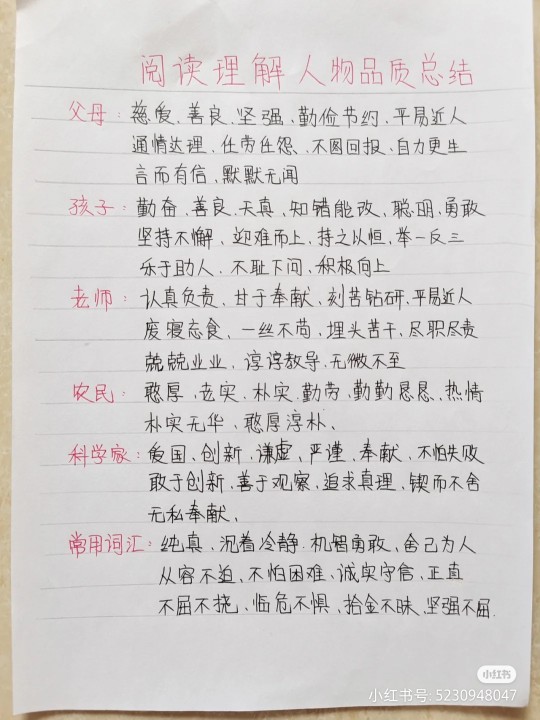 阅读理解人物品质总结
父母：慈爱、善良、坚强、勤俭节约、平易近人
通情达理、任劳任怨、不图回报、自力更生
言而有信、默默无闻
孩子：勤奋、善良、天真、知错能改、聪明、勇敢
坚持不懈、迎难而上、持之以恒、举一反三
乐于助人、不耻下问、积极向上
老师：认真负责、甘于奉献、刻苦钻研、平易近人
废寝忘食、一丝不苟、埋头苦干、尽职尽责
兢兢业业、谆谆教导、无微不至
农民：憨厚、老实、朴实、勤劳、勤勤恳恳、热情
朴实无华、憨厚淳朴、
科学家：爱国、创新、谦虚、严谨、奉献、不怕失败
敢于创新、善于观察、追求真理、锲而不舍
无私奉献、
常用词汇：纯真、沉着冷静、机智勇敢、舍己为人
从容不迫、不怕困难、诚实守信、正直
不屈不挠、临危不惧、拾金不昧、坚强不屈.
小红书
小红书号: 5230948047